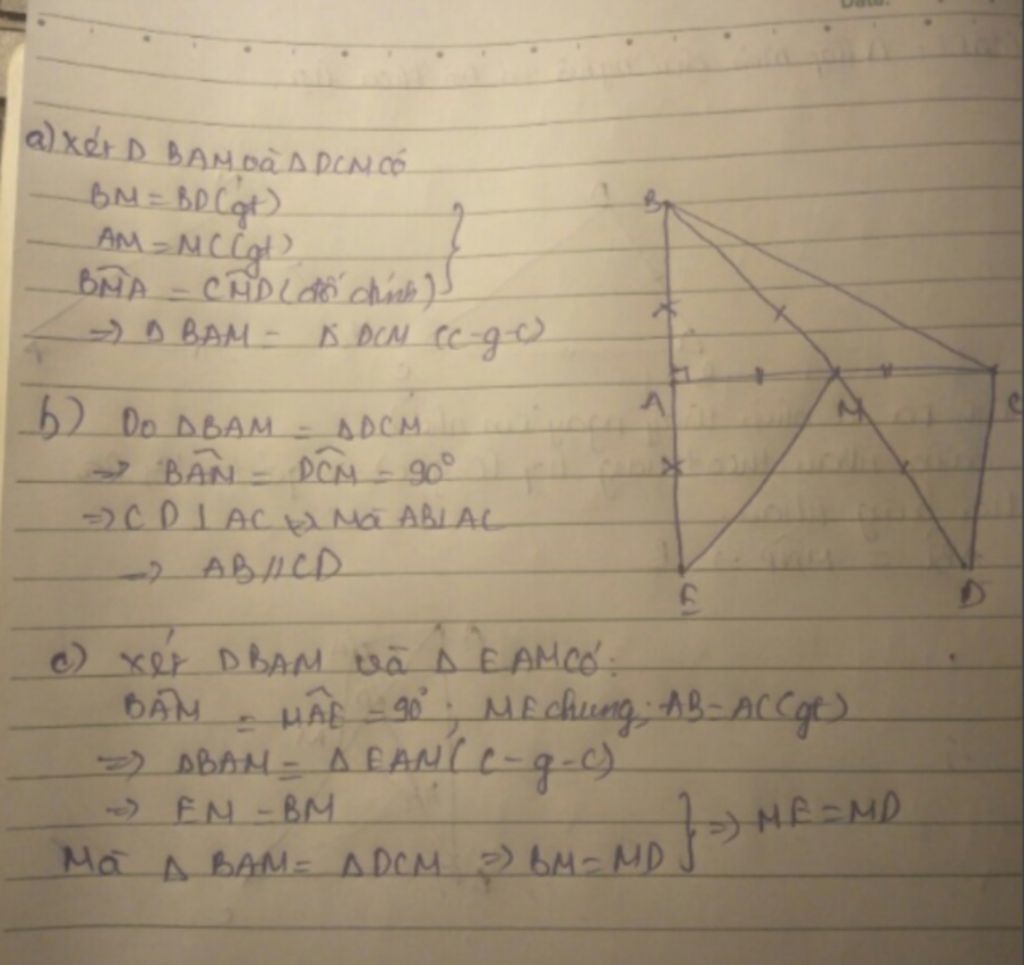 Date:
a) Xét Δ BAM và Δ DCM có
BM = BD (gt)
AM = MC (gt)
BMA = CMD (đối đỉnh)
=> Δ BAM = Δ DCM (c-g-c)
b) Do ΔBAM = ΔDCM
=> BAM = DCM = 90°
=> CD ⊥ AC Mà AB⊥AC
=> AB // CD
c) Xét ΔBAM và Δ EAM có:
BAM = MAE = 90°; ME chung; AB = AC (gt)
=> ΔBAM = Δ EAM (c-g-c)
=> EM = BM
Mà Δ BAM = ΔDCM => BM = MD } => ME = MD
B
A
M
C
E
D